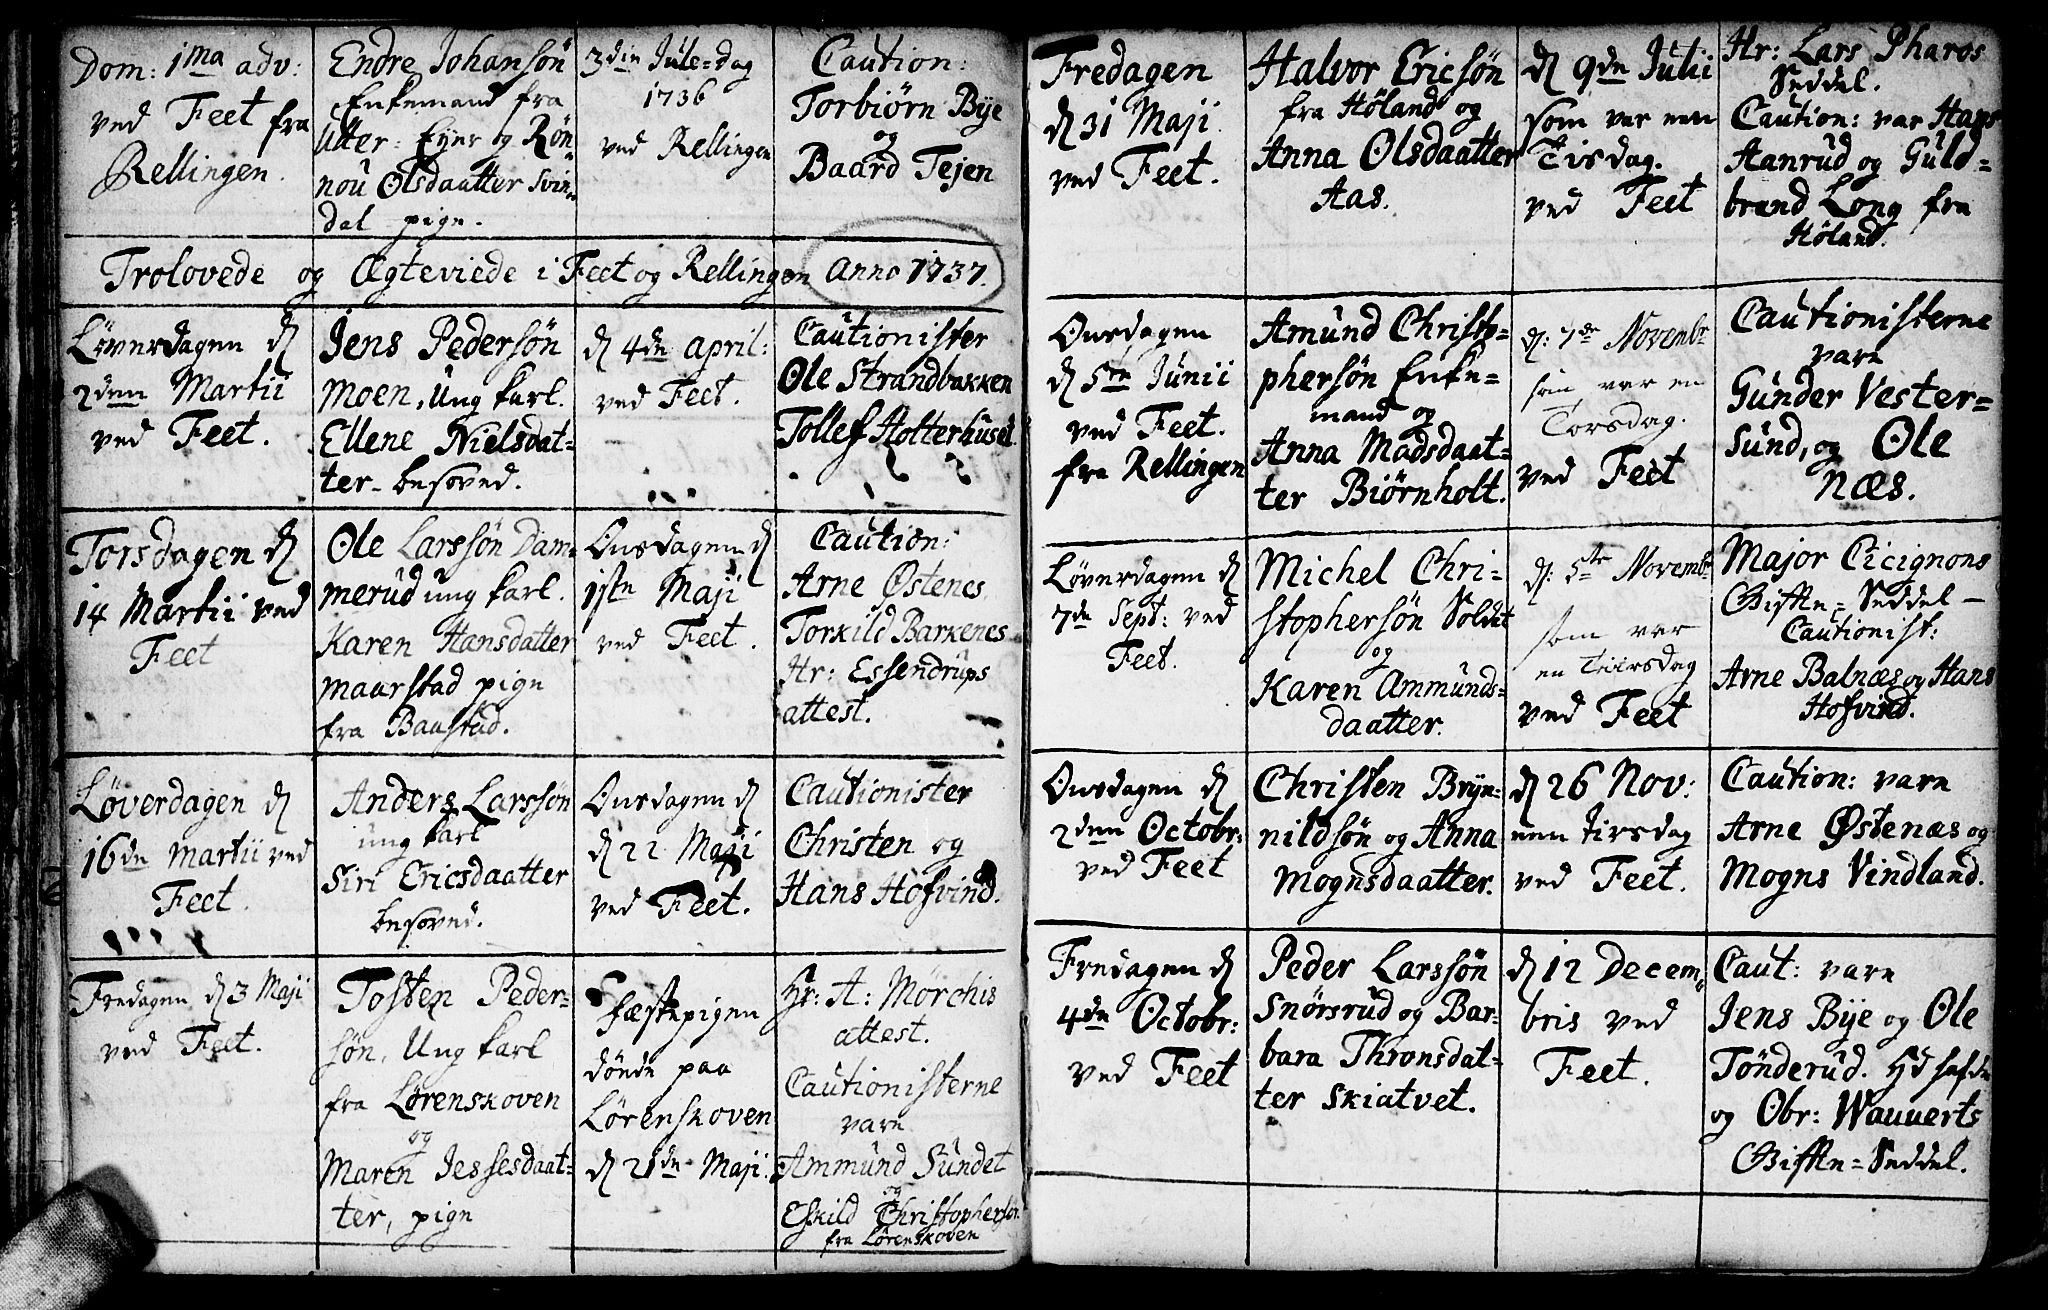 Dom: 1ma adv:
ved Feet fra
Rellingen.
Endre Johansøn
Enkemand fra
Utter: Eyer og Røn-
nou Olsdaatter Svin-
dal pige.
3die Jule-dag
1736
ved Rellingen
Caution:
Torbiørn Bye
og
Baard Tejen
Trolovede og Ægteviede i Feet og Rellingen Anno 1737.
Løverdagen d
2den Martii
ved Feet.
Jens Pedersøn
Moen, Ung karl.
Ellene Nielsdat-
ter besoved.
d 4de April:
ved Feet.
Cautionister
Ole Strandbakken
Tollef Holterhuset
Torsdagen d
14 Martii ved
Feet
Ole Larssøn Dam-
merud ung karl.
Karen Hansdatter
Maarstad pige
fra Baastad.
Onsdagen d
1ste Maji
ved Feet.
Caution:
Arne Østenes
Torkild Barkenes
Hr: Essendrups
attest.
Løverdagen d
16de Martii ved
Feet.
Anders Larssøn
ung karl
Siri Ericsdaatter
besoved.
Onsdagen d
d 22 Maji
ved Feet.
Cautionister
Christen og
Hans Hofvind.
Fredagen d 3 Maji
ved Feet.
Tosten Peder-
søn, Ung karl
fra Lørenskoven
og
Maren Jessesdaat-
ter, pige
Fæstepigen
dønde paa
Lørenskoven
d 21de Maji.
Hr: A: Mørchis
attest.
Cautionisterne
vare
Ammund Sundet
og
Eskild Christophersøn
fra Lørenskoven
Fredagen
d 31 Maji
ved Feet.
Halvor Ericsøn
fra Høland og
Anna Olsdaatter
Aas.
d 9de Julii
som var een
Tisdag.
ved Feet
Hr: Lars Pharos
Seddel.
Caution: var Hans
Aanrud og Guld-
brand Long fra
Høland.
Onsdagen
d 5te Junii
ved Feet.
fra Rellingen
Amund Christo-
phersøn Enke-
mand og
Anna Madsdaat-
ter Biørnholt.
d: 7de Novembr
som var en
Torsdag.
ved Feet
Cautionisterne
vare
Gunder Vester-
sund, og Ole
Næs.
Løverdagen d
7de Sept: ved
Feet.
Michel Chri-
stophersøn Soldat
og
Karen Ammunds-
daatter.
d: 5te Novembr
som var
en Tiirsdag
ved Feet
Major Cicignons
Gifte-Seddel -
Cautionist:
Arne Balnæs og Hans
Hofvind.
Onsdagen d
2den Octobr:
ved Feet
Christen Bryn-
nildsøn og Anna
Mognsdaatter.
d 26 Nov:
een Tirsdag
ved Feet.
Caution: vare
Arne Østenæs og
Mogns Vindland.
Fredagen d
4de Octobr:
ved Feet
Peder Larssøn
Snørsrud og Bar-
bara Thronsdat-
ter Skiatvet.
d 12 Decem-
bris ved
Feet.
Caut: vare
Jens Bye og Ole
Tønderud. Hd hafde
og Obr: Wauverts
Gifte-Seddel.